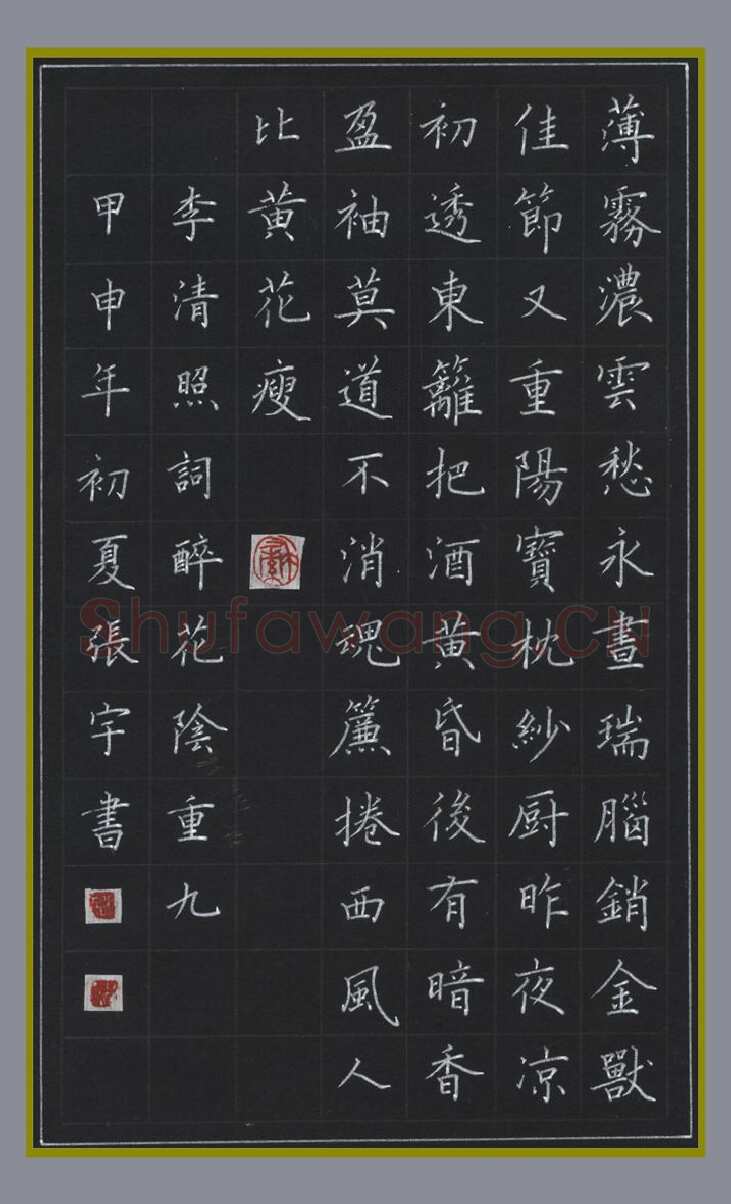 薄霧濃雲愁永晝瑞腦銷金獸
佳節又重陽寶枕紗厨昨夜凉
初透東籬把酒黄昏後有暗香
盈袖莫道不消魂簾捲西風人
比黄花瘦
李清照詞醉花陰重九
甲申年初夏張宇書
Shufawang.CN